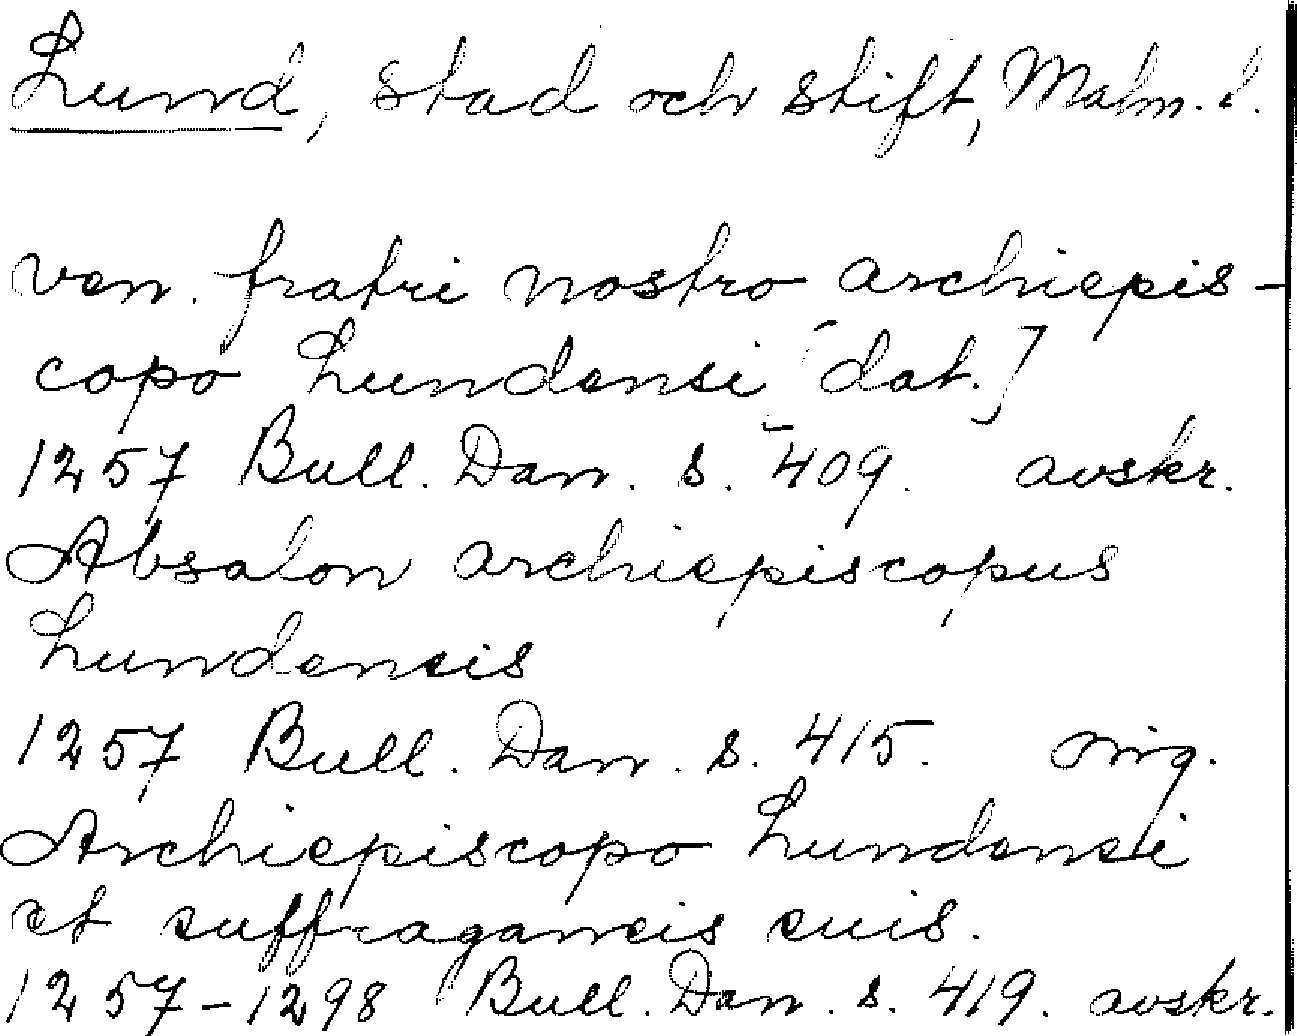 Lund, stad och stift, Malm. l.
ven. fratri nostro archiepis-
copo Lundensi [dat.]
1257 Bull. Dan. s. 409. avskr.
Absalon archiepiscopus
Lundensis
1257 Bull. Dan. s. 415. orig.
Archiepiscopo Lundensi
et suffraganeis suis.
1257-1298 Bull. Dan. s. 419. avskr.